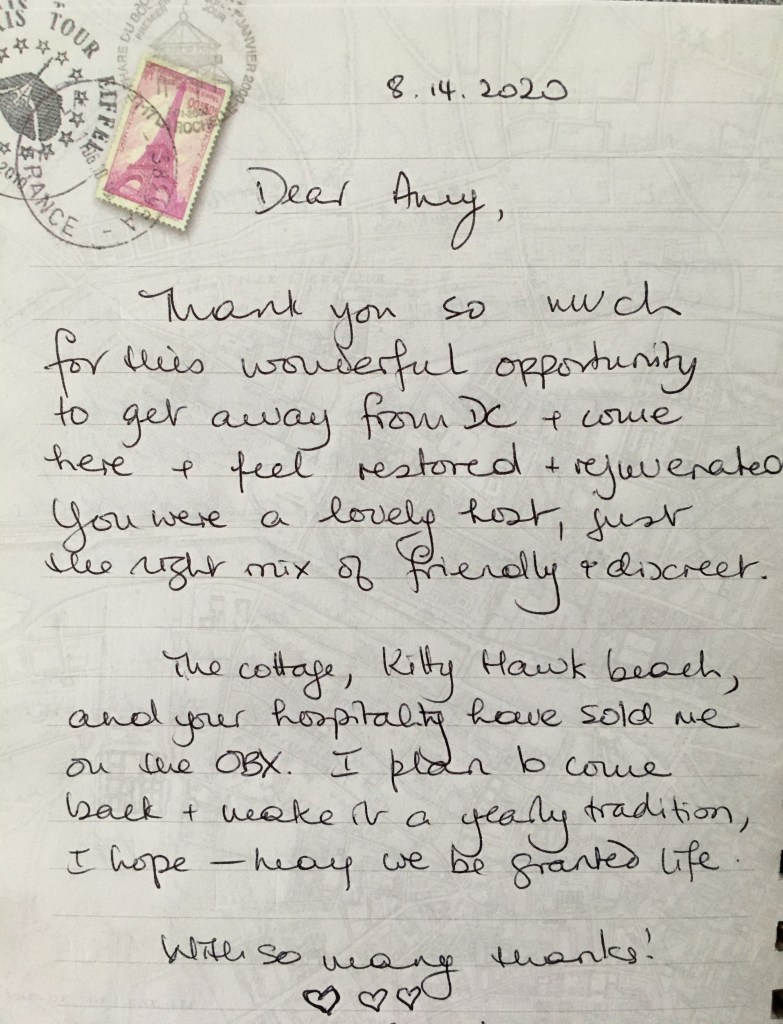 TOUR EIFFEL
FRANCE
JANVIER 2000
8.14.2020
Dear Amy,
Thank you so much
for this wonderful opportunity
to get away from DC + come
here + feel restored + rejuvenated
You were a lovely host, just
the right mix of friendly + discreet.
The cottage, Kitty Hawk beach,
and your hospitality have sold me
on the OBX. I plan to come
back + make it a yearly tradition,
I hope — may we be granted life.
With so many thanks!